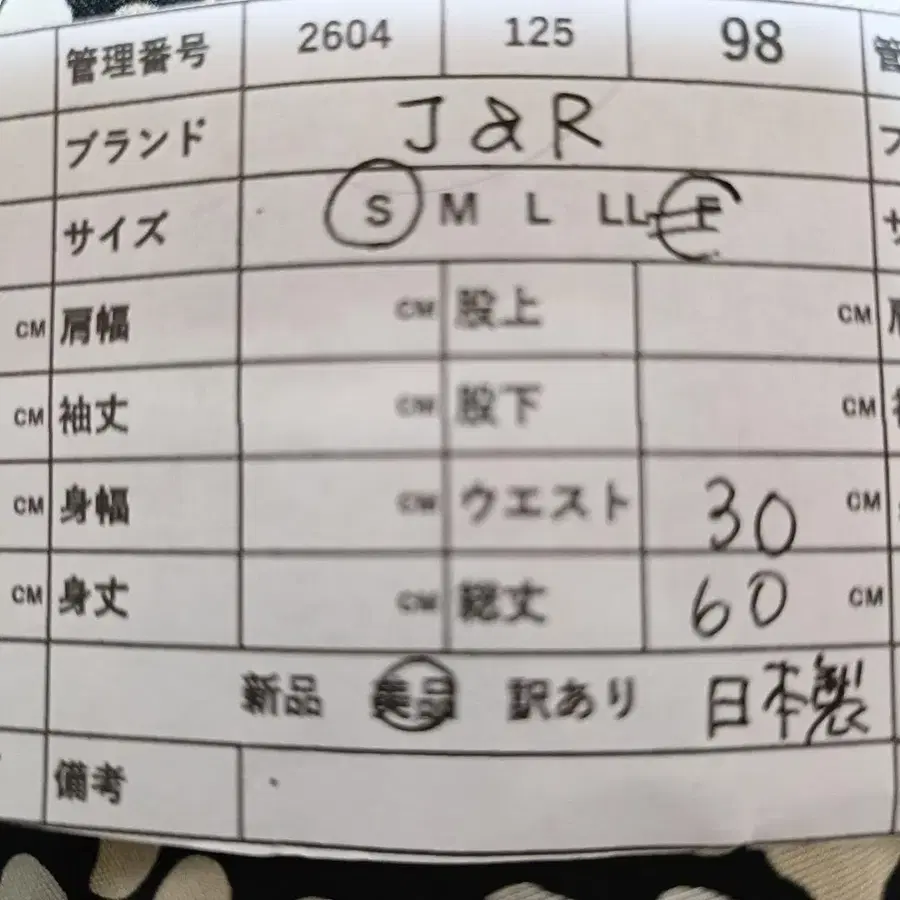 管理番号 2604 125 98 管
ブランド J & R ブ
サイズ S M L LL F サ
CM 肩幅 CM 股上 CM 肩
CM 袖丈 CM 股下 CM 袖
CM 身幅 CM ウエスト 30 CM
CM 身丈 CM 総丈 60 CM
新品 美品 訳あり 日本製
備考